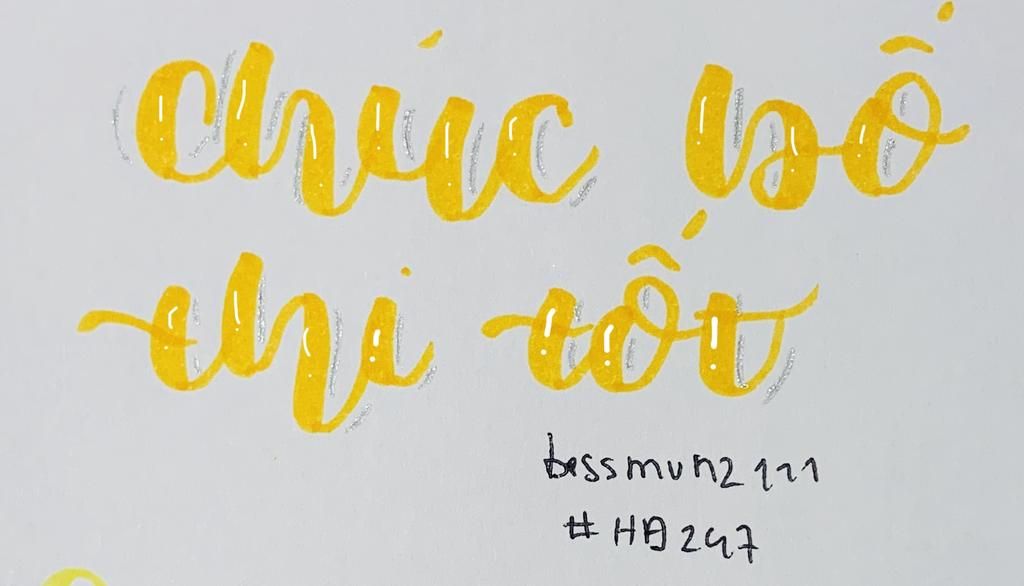 chúc bố
thi tốt
bessmun2111
#HD247